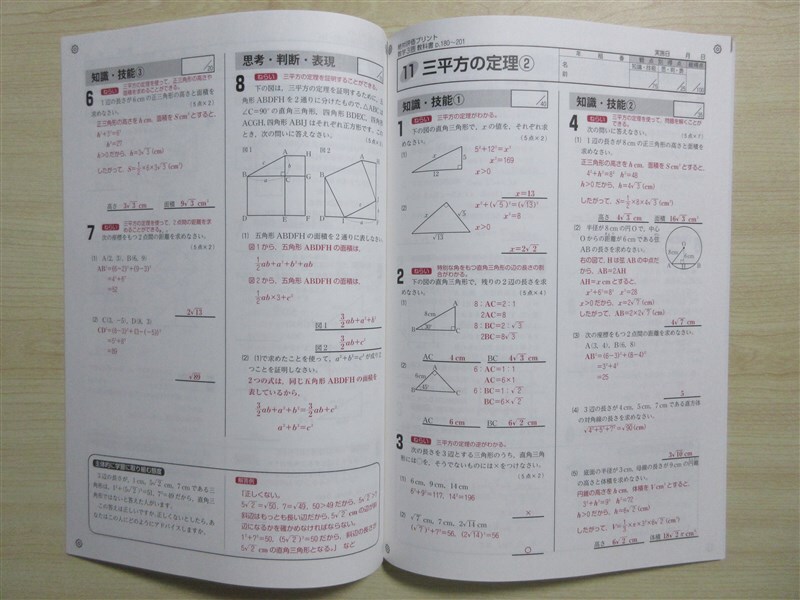 知識・技能③
6
ねらい 三平方の定理を使って、正三角形の高さや面積を求めることができる。
1辺の長さが6cmの正三角形の高さと面積を求めなさい。
(5点×2)
正三角形の高さをh cm, 面積をS cm²とすると,
h²=27
h>0だから, h=3√3(cm)
したがって, S=½×6×3√3(cm²)
高さ 3√3 cm 面積 9√3 cm²
7
ねらい 三平方の定理を使って、2点間の距離を求めることができる。
次の座標をもつ2点間の距離を求めなさい。
(5点×2)
=52
2√13
=89
√89
思考・判断・表現
8
ねらい 三平方の定理を証明することができる。
下の図は、三平方の定理を証明するために, 五
角形ABDFHを2通りに分けたもので, △ABCは
∠C=90°の直角三角形, 四角形BDEC, 四角形
ACGH, 四角形ABIJはそれぞれ正方形です。このと
き, 次の問いに答えなさい。
図1
図2
(1) 五角形ABDFHの面積を2通りに表しなさい。
図1から, 五角形ABDFHの面積は,
½ab+a²+b²+ab
図2から, 五角形ABDFHの面積は,
½ab×3+c²
図1 3/2ab+a²+b²
図2 3/2ab+c²
(2) (1)で求めたことを使って, a²+b²=c²が成り立
つことを証明しなさい。
2つの式は, 同じ五角形ABDFHの面積を
表しているから,
3/2ab+a²+b²=3/2ab+c²
a²+b²=c²
主体的に学習に取り組む態度
3辺の長さが, 1cm, 5√2cm, 7cmである三
角形は, 1²+(5√2)²=51, 7²=49だから, 直角三
角形ではないと答えた人がいます。
この答えは正しいですか。正しくないとしたら, あ
なたはこの人にどのようにアドバイスしますか。
解答例
「正しくない。
5√2=√50, 7=√49, 50>49だから, 5√2>7
斜辺はもっとも長い辺だから, 5√2cmの辺が斜
辺になるかを確かめなければならない。
1²+7²=50, (5√2)²=50だから, 斜辺の長さが
5√2cmの直角三角形となる。」 など
観点評価プリント
数学3年 教科書p.190〜201
11 三平方の定理②
年 組 番
実施日 月 日
名前
知識・技能①
/40
1
ねらい 三平方の定理がわかる。
下の図の直角三角形で, xの値を, それぞれ求
めなさい。
(5点×2)
(1)
5
12
x
5²+12²=x²
x²=169
x>0
x=13
(2)
x
√5
√13
x²+(√5)²=(√13)²
x²=8
x>0
x=2√2
2
ねらい 特別な角をもつ直角三角形の辺の長さの割合がわかる。
下の図の直角三角形で, 残りの2辺の長さを求
めなさい。
(5点×4)
(1)
8cm
30°
8:AC=2:1
2AC=8
8:BC=2:√3
2BC=8√3
AC 4cm BC 4√3 cm
(2)
6cm
45°
6:AC=1:1
AC=6×1
6:BC=1:√2
BC=6×√2
AC 6cm BC 6√2 cm
3
ねらい 三平方の定理の逆がわかる。
次の長さを3辺とする三角形のうち, 直角三角
形には○を, そうでないものには×をつけなさい。
(1) 6cm, 9cm, 14cm
6²+9²=117, 14²=196
×
(2) √7cm, 7cm, 2√14cm
(√7)²+7²=56, (2√14)²=56
○
知識・技能②
4
ねらい 三平方の定理を使って, 問題を解くことができる。
次の問いに答えなさい。
(5点×7)
(1) 1辺の長さが8cmの正三角形の高さと面積を
求めなさい。
正三角形の高さをh cm, 面積をS cm²とすると,
4²+h²=8² h²=48
h>0だから, h=4√3(cm)
したがって, S=½×8×4√3(cm²)
高さ 4√3 cm 面積 16√3 cm²
(2) 半径が8cmの円Oで, 中心
Oからの距離が6cmである弦
ABの長さを求めなさい。
右の図で, Hは弦ABの中点だ
から, AB=2AH
AH=x cmとすると,
x²+6²=8² x²=28
x>0だから, x=2√7(cm)
したがって, AB=2×2√7(cm)
4√7 cm
(3) 次の座標をもつ2点間の距離を求めなさい。
A(3, 4), B(6, 8)
AB²=(6−3)²+(8−4)²
=3²+4²
=25
5
(4) 3辺の長さが4cm, 5cm, 7cmである直方体
の対角線の長さを求めなさい。
√4²+5²+7²=√90(cm)
3√10 cm
(5) 底面の半径が3cm, 母線の長さが9cmの円錐
の高さと体積を求めなさい。
円錐の高さをh cm, 体積をV cm³とすると,
3²+h²=9² h²=72
h>0だから, h=6√2(cm)
したがって, V=⅓π×3²×6√2(cm³)
高さ 6√2 cm 体積 18√2π cm³